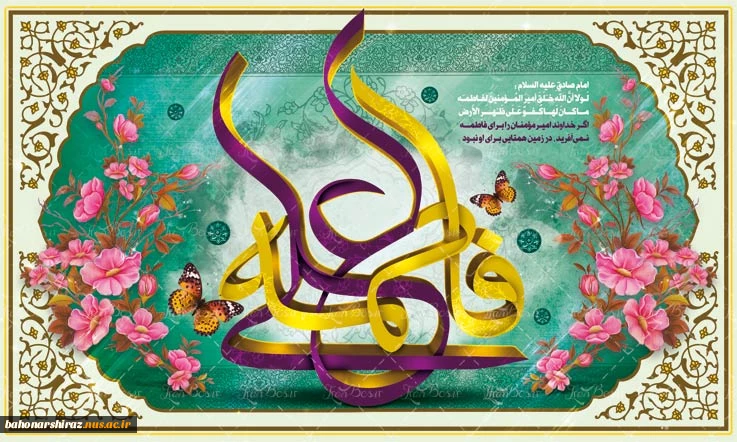 امام صادق علیه السلام :
لَولا أنَّ اللهَ خَلَقَ أمیرَ المُؤمِنینَ لِفاطِمَه
ماکانَ لَها کُفوٌ عَلی ظَهرِ الأرضِ
اگر خداوند امیرمؤمنان را برای فاطمه
نمی‌آفرید، در زمین همتایی برای او نبود
علی
فاطمه
bahonarshiraz.nus.ac.ir